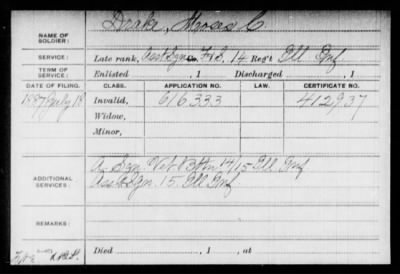 Drake, Moses C.
NAME OF
SOLDIER:
SERVICE:
Late rank, Asst Sgn F & S, 14 Reg't Ill Inf.
TERM OF
SERVICE:
Enlisted , 1 Discharged , 1
DATE OF FILING. CLASS. APPLICATION NO. LAW. CERTIFICATE NO.
1887 July 18 Invalid, 616333 412937
Widow,
Minor,
ADDITIONAL
SERVICES:
A. Sgn. Vet Btn 14/15 Ill Inf
Asst Sgn. 15. Ill Inf
REMARKS:
Died , 1 , at